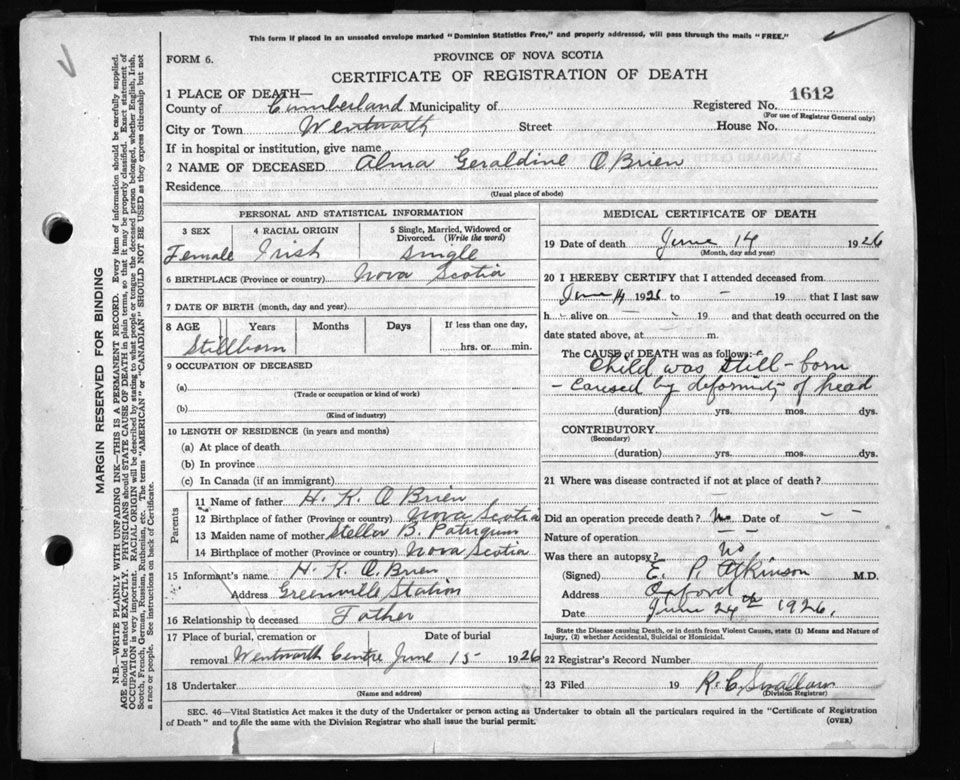 This form if placed in an unsealed envelope marked "Dominion Statistics Free," and properly addressed, will pass through the mails "FREE."
FORM 6.
PROVINCE OF NOVA SCOTIA
CERTIFICATE OF REGISTRATION OF DEATH
1 PLACE OF DEATH—
County of Cumberland Municipality of
Registered No. 1612
(For use of Registrar General only)
City or Town Wentworth Street House No.
If in hospital or institution, give name
2 NAME OF DECEASED Alma Geraldine O'Brien
Residence
(Usual place of abode)
PERSONAL AND STATISTICAL INFORMATION
3 SEX 4 RACIAL ORIGIN 5 Single, Married, Widowed or Divorced. (Write the word)
Female Irish Single
6 BIRTHPLACE (Province or country) Nova Scotia
7 DATE OF BIRTH (month, day and year)
8 AGE Years Months Days If less than one day,
Stillborn hrs. or min.
9 OCCUPATION OF DECEASED
(a)
(Trade or occupation or kind of work)
(b)
(Kind of industry)
10 LENGTH OF RESIDENCE (in years and months)
(a) At place of death
(b) In province
(c) In Canada (if an immigrant)
Parents
11 Name of father H. K. O'Brien
12 Birthplace of father (Province or country) Nova Scotia
13 Maiden name of mother Stella B.
14 Birthplace of mother (Province or country) Nova Scotia
15 Informant's name H. K. O'Brien
Address Greenville Station
16 Relationship to deceased Father
17 Place of burial, cremation or Date of burial
removal Wentworth Centre June 15 1926
18 Undertaker
(Name and address)
MEDICAL CERTIFICATE OF DEATH
19 Date of death June 14 1926
(Month, day and year)
20 I HEREBY CERTIFY that I attended deceased from
June 14 1926 to – 19 that I last saw
h alive on – 19 and that death occurred on the
date stated above, at m.
The CAUSE of DEATH was as follows:
Child was still-born
– caused by deformity of head
(duration) yrs. mos. dys.
CONTRIBUTORY
(Secondary)
(duration) yrs. mos. dys.
21 Where was disease contracted if not at place of death?
Did an operation precede death? No Date of – –
Nature of operation – –
Was there an autopsy? No
(Signed) E. P. Atkinson M.D.
Address Oxford
Date June 24th 1926.
State the Disease causing Death, or in death from Violent Causes, state (1) Means and Nature of
Injury, (2) whether Accidental, Suicidal or Homicidal.
22 Registrar's Record Number
23 Filed 19 R. C. Smallam
(Division Registrar)
SEC. 46—Vital Statistics Act makes it the duty of the Undertaker or person acting as Undertaker to obtain all the particulars required in the "Certificate of Registration
of Death" and to file the same with the Division Registrar who shall issue the burial permit.
(OVER)
MARGIN RESERVED FOR BINDING
N.B.—WRITE PLAINLY WITH UNFADING INK—THIS IS A PERMANENT RECORD. Every item of information should be carefully supplied.
AGE should be stated EXACTLY. PHYSICIANS should STATE CAUSE OF DEATH in plain terms, so that it may be properly classified. Exact statement of
OCCUPATION is very important. RACIAL ORIGIN will be described by stating to what people or tongue the deceased person belonged, whether English, Irish,
Scotch, French, German, Russian, Ruthenian, etc. The terms "AMERICAN" or "CANADIAN" SHOULD NOT BE USED as they express citizenship but not
a race or people. See instructions on back of Certificate.